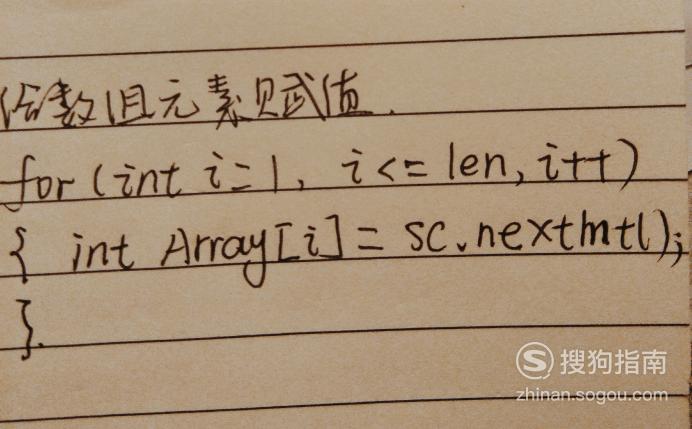 给数组元素赋值.
for (int i=1, i<=len, i++)
{ int Array[i]= sc.nextInt();
}.
搜狗指南
zhinan.sogou.com